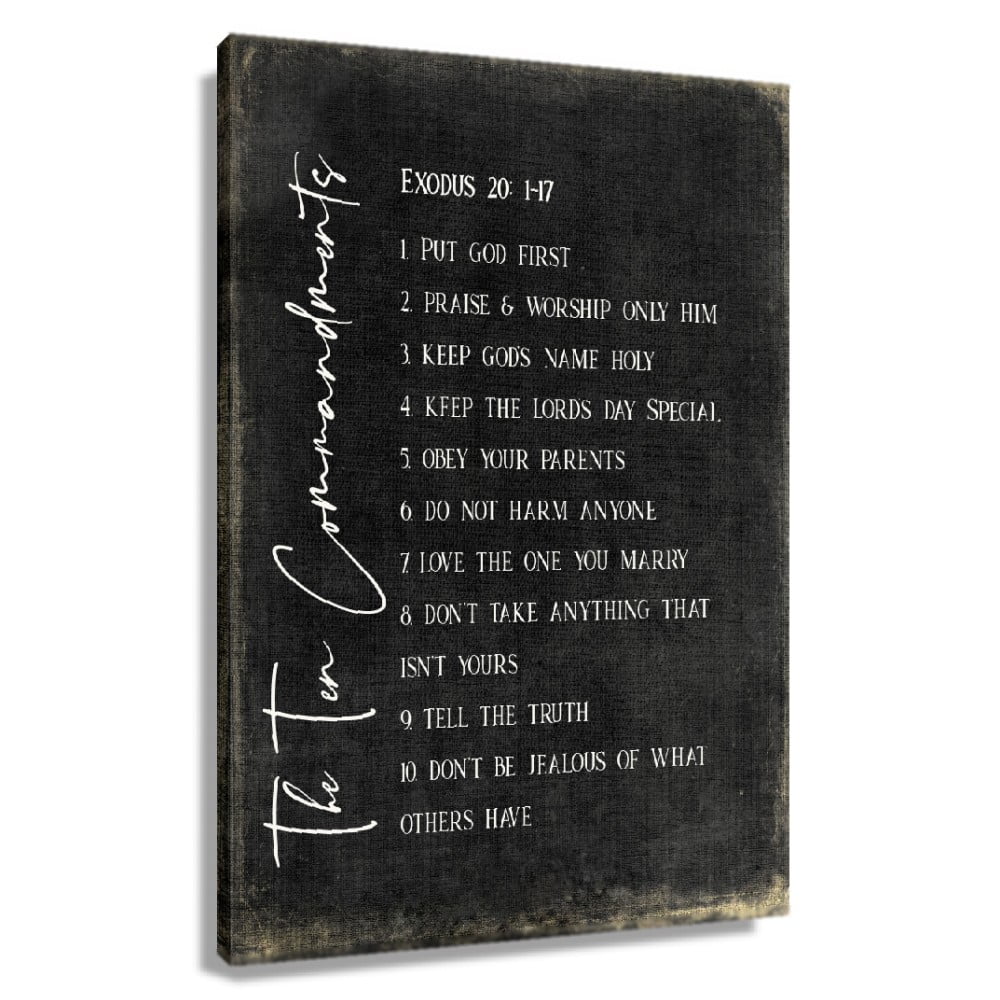 The Ten Commandments
EXODUS 20: 1-17
1. PUT GOD FIRST
2. PRAISE & WORSHIP ONLY HIM
3. KEEP GOD'S NAME HOLY
4. KEEP THE LORD'S DAY SPECIAL
5. OBEY YOUR PARENTS
6. DO NOT HARM ANYONE
7. LOVE THE ONE YOU MARRY
8. DON'T TAKE ANYTHING THAT
ISN'T YOURS
9. TELL THE TRUTH
10. DON'T BE JEALOUS OF WHAT
OTHERS HAVE